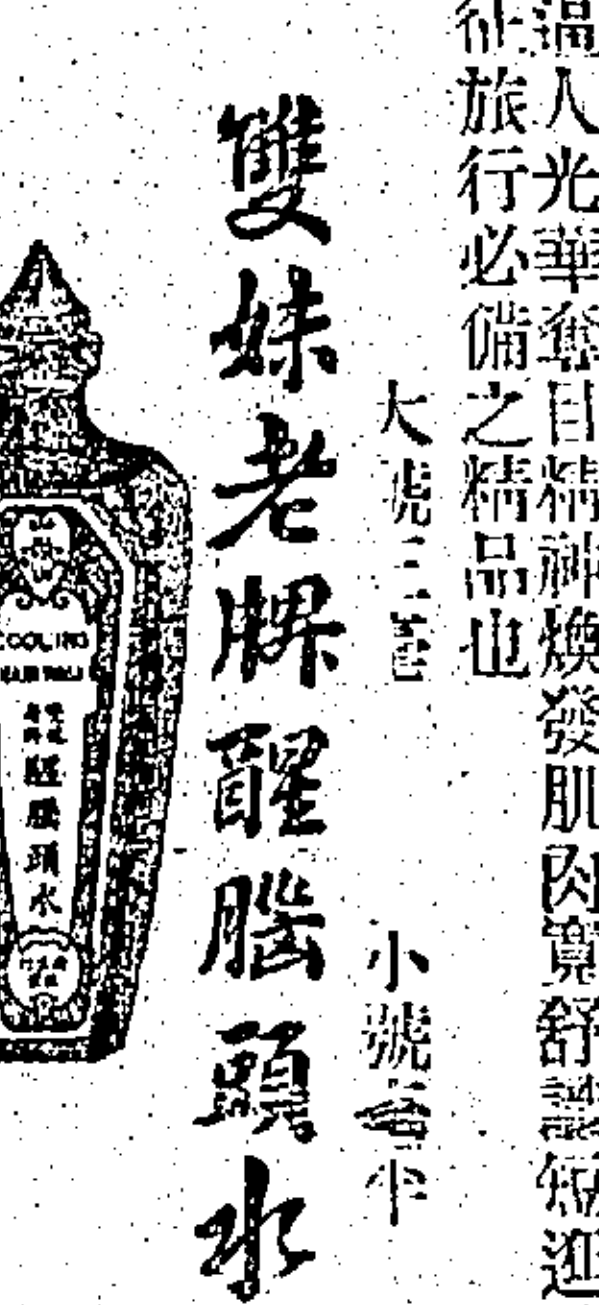 人光華奪目精神煥發肌肉寬舒誠
征旅行必備之精品也
大號三毫
小號毫半
雙妹老牌醒腦頭水
COOLING
醒腦頭水